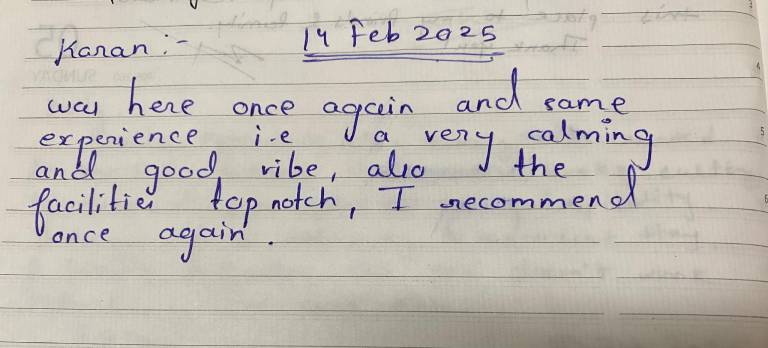 Karan :- 14 Feb 2025
was here once again and same
experience i.e a very calming
and good vibe, also the
facilities top notch, I recommend
once again.